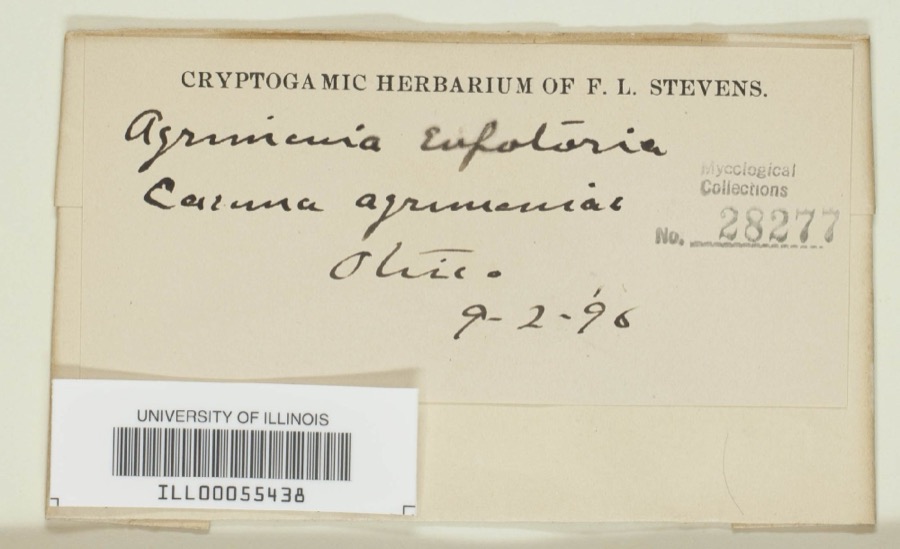 CRYPTOGAMIC HERBARIUM OF F. L. STEVENS.
Agrimonia Eupatoria
Caeoma agrimoniae
Ohio.
9-2-'96
Mycological
Collections
No. 28277
UNIVERSITY OF ILLINOIS
ILL00055438